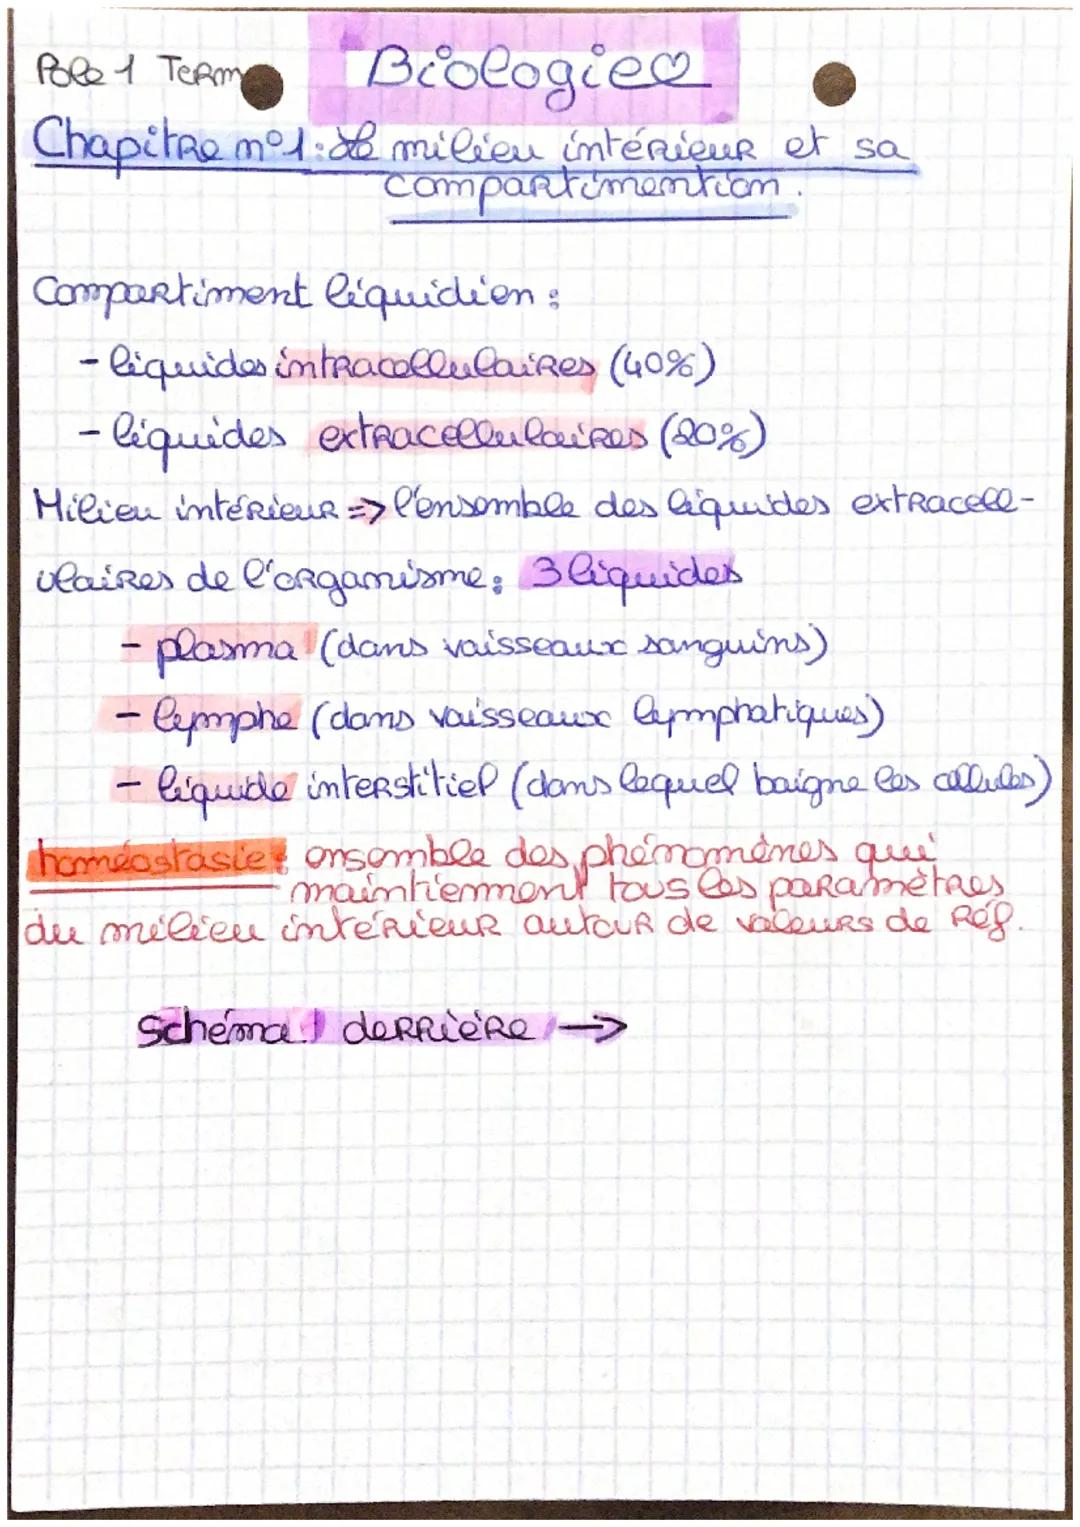 Pole 1 Term Biologie♡
Chapitre n°1: Le milieu intérieur et sa
compartimention.
Compartiment liquidien :
- liquides intracellulaires (40%)
- liquides extracellulaires (20%)
Milieu intérieur => l'ensemble des liquides extracell-
ulaires de l'organisme: 3 liquides
- plasma (dans vaisseaux sanguins)
- lymphe (dans vaisseaux lymphatiques)
- liquide interstitiel (dans lequel baigne les cellules)
homéostasie: ensemble des phénomènes qui
maintiennent tous les paramètres
du milieu intérieur autour de valeurs de Réf.
Schéma! derrière →